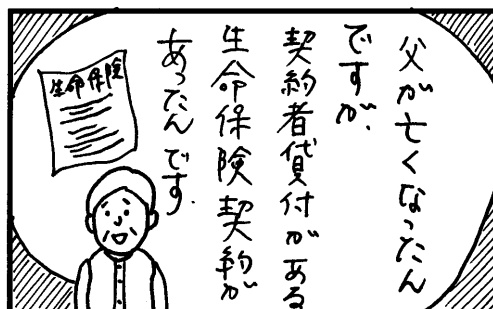 父が亡くなったん
ですが、
契約者貸付がある
生命保険契約が
あったんです.
生命保険